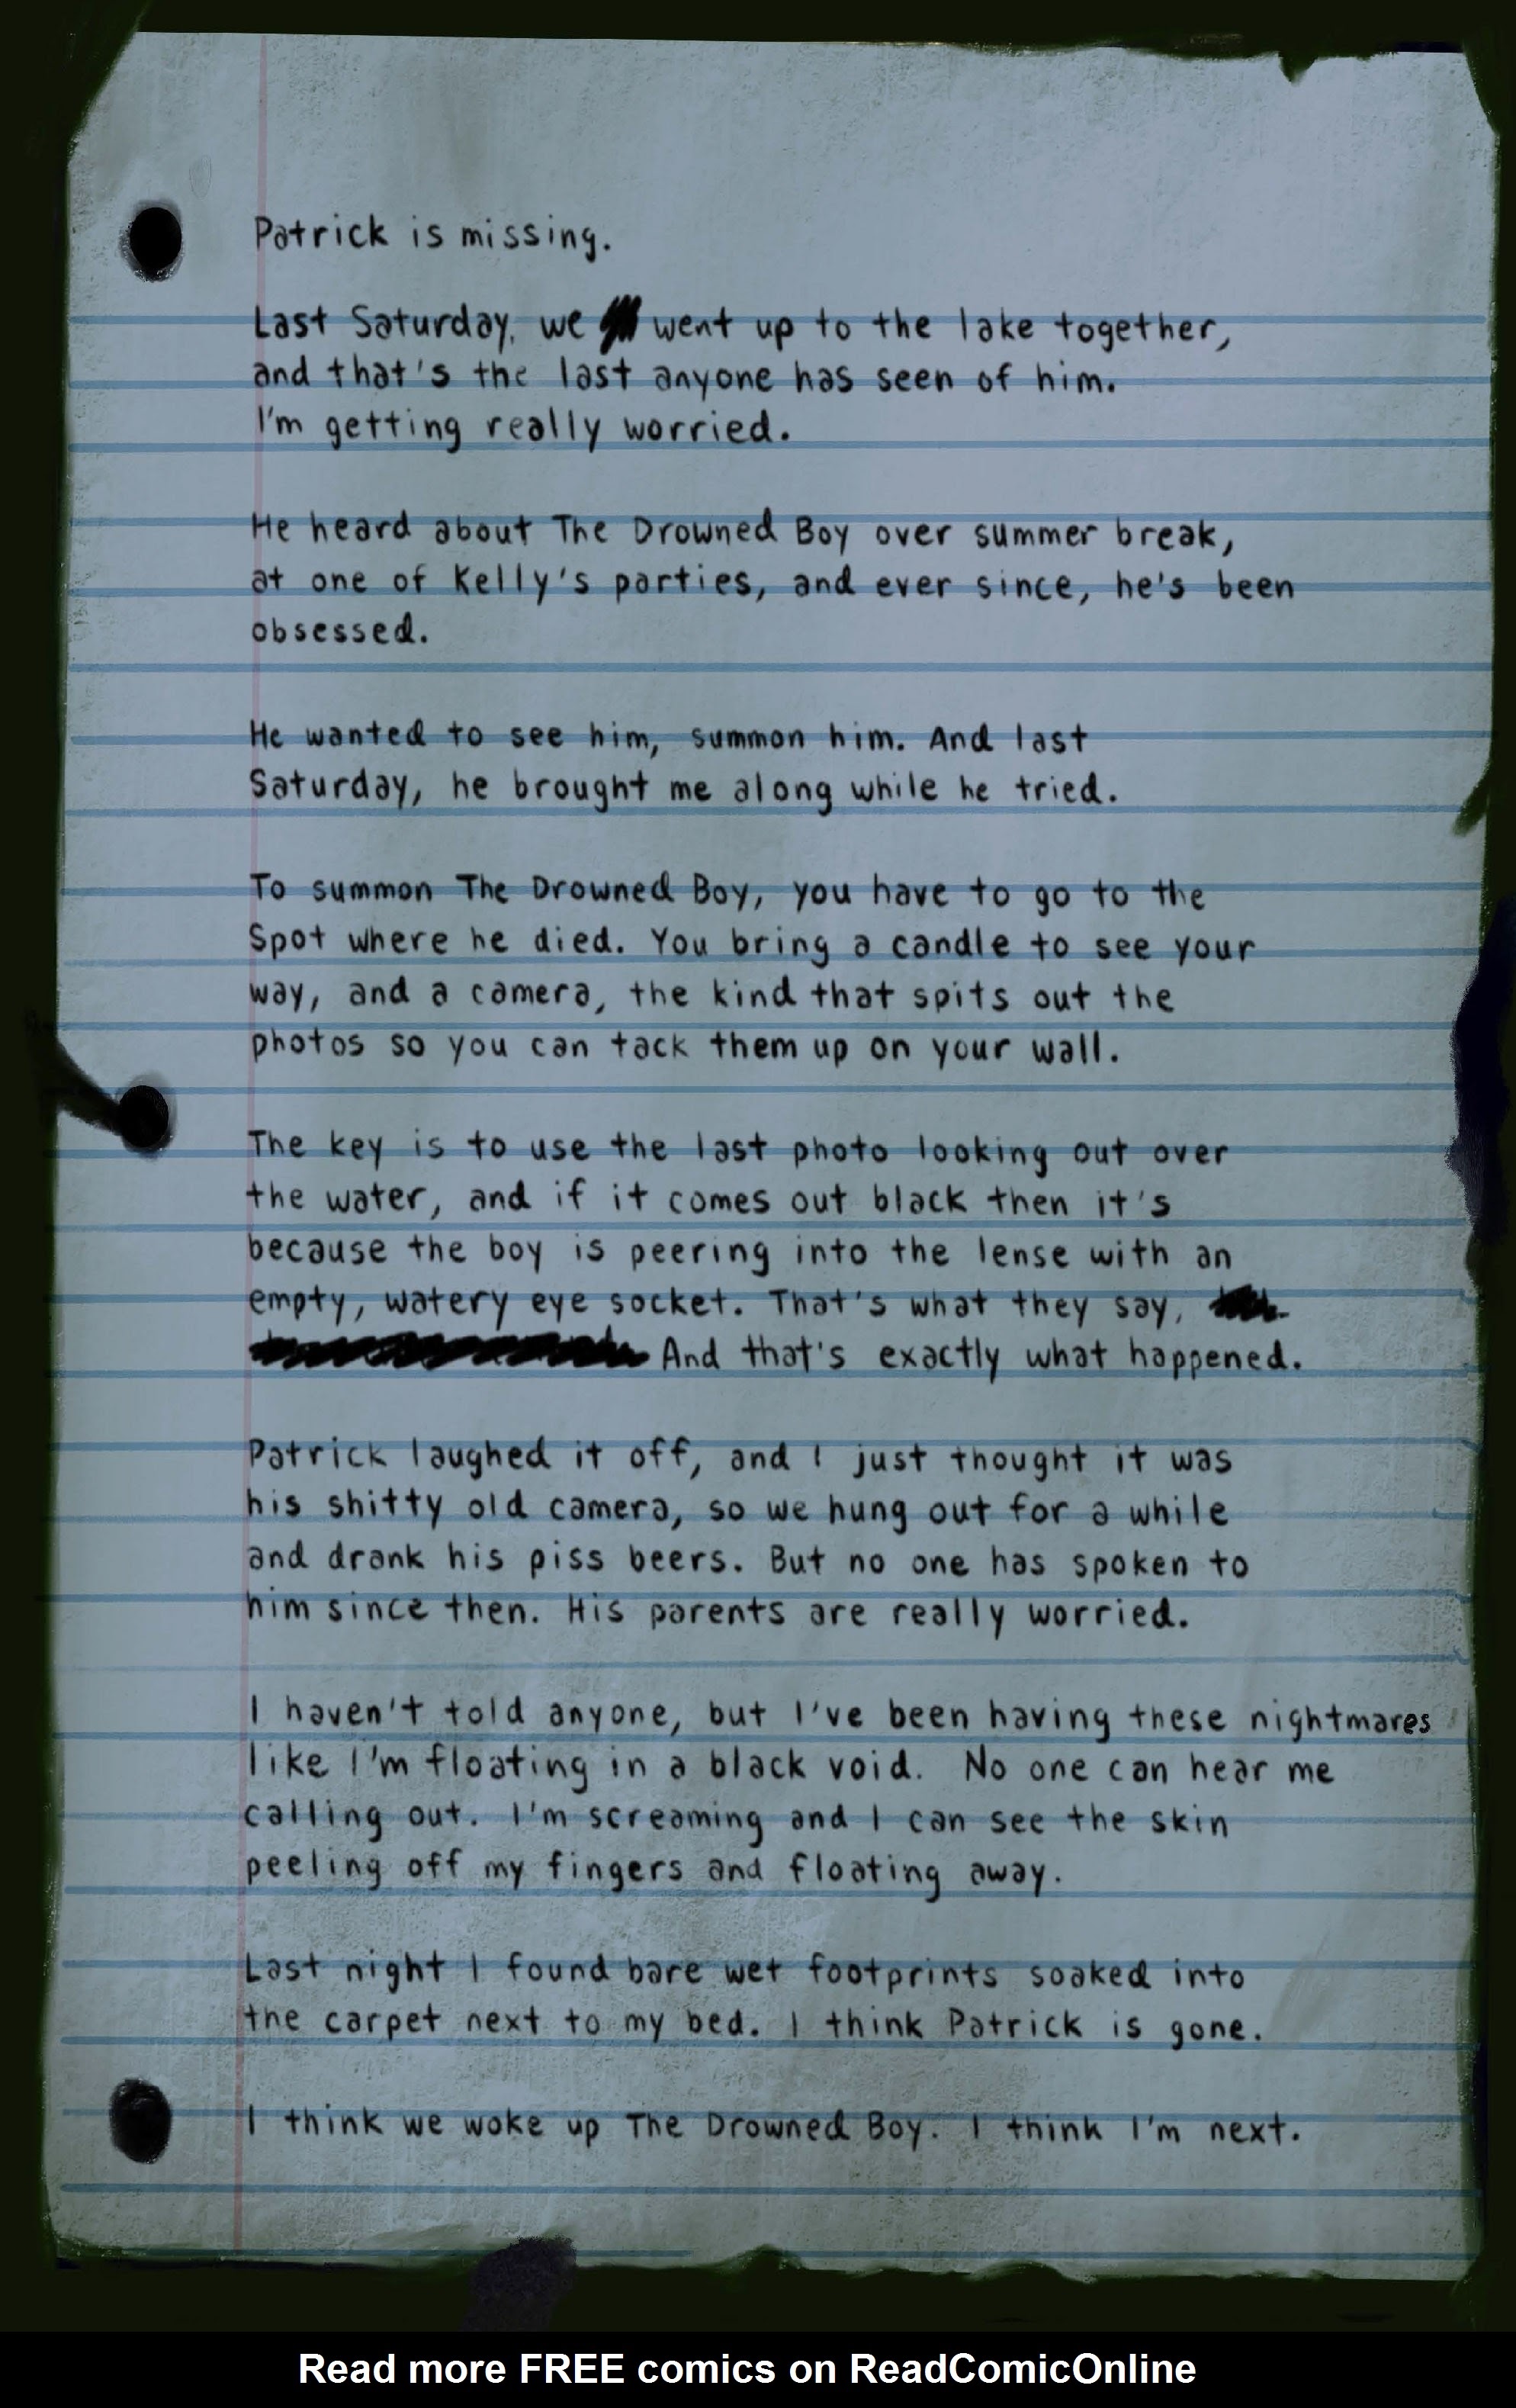 Patrick is missing.
Last Saturday, we went up to the lake together,
and that's the last anyone has seen of him.
I'm getting really worried.
He heard about The Drowned Boy over summer break,
at one of Kelly's parties, and ever since, he's been
obsessed.
He wanted to see him, summon him. And last
Saturday, he brought me along while he tried.
To summon The Drowned Boy, you have to go to the
Spot where he died. You bring a candle to see your
way, and a camera, the kind that spits out the
photos so you can tack them up on your wall.
The key is to use the last photo looking out over
the water, and if it comes out black then it's
because the boy is peering into the lense with an
empty, watery eye socket. That's what they say,
And that's exactly what happened.
Patrick laughed it off, and I just thought it was
his shitty old camera, so we hung out for a while
and drank his piss beers. But no one has spoken to
him since then. His parents are really worried.
I haven't told anyone, but I've been having these nightmares
like I'm floating in a black void. No one can hear me
calling out. I'm screaming and I can see the skin
peeling off my fingers and floating away.
Last night I found bare wet footprints soaked into
the carpet next to my bed. I think Patrick is gone.
I think we woke up The Drowned Boy. I think I'm next.
Read more FREE comics on ReadComicOnline